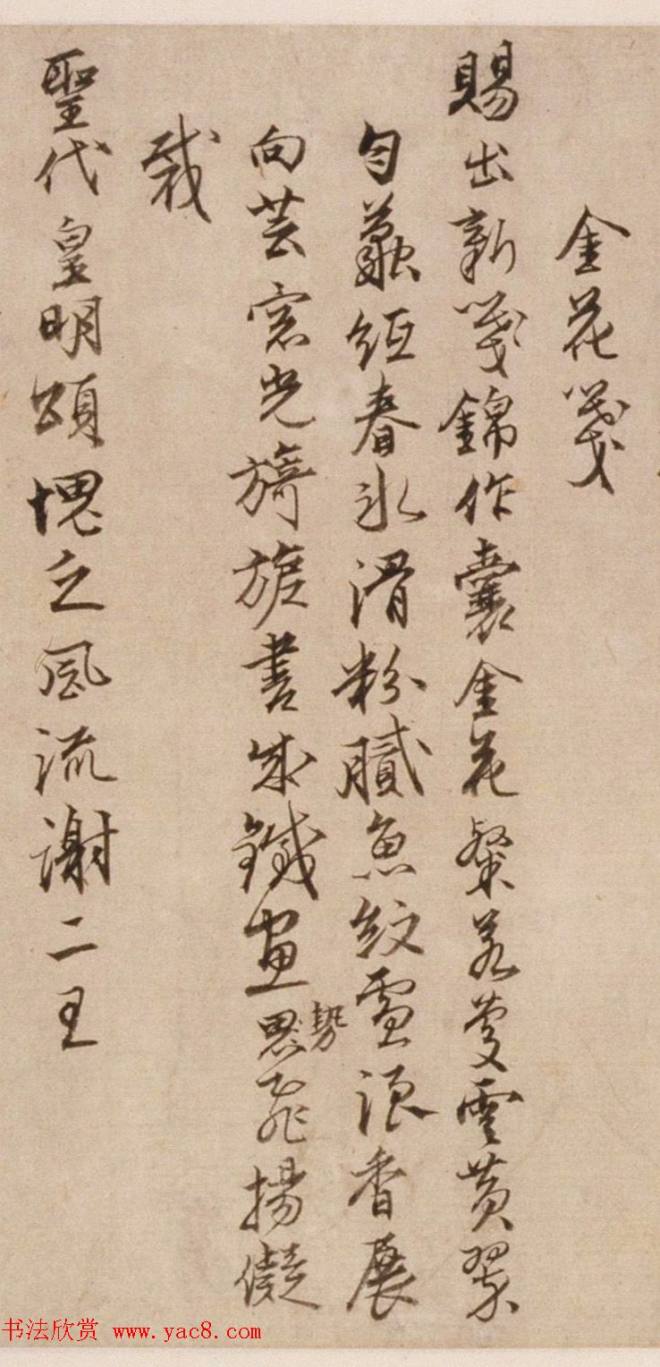 金花笺
賜出新笺錦作囊金花粲若蔓雲黄翠
匀蘸紙春冰滑粉膩魚紋雪浪香展
向芸窓光旖旎書成鐵畫思勢飛揚儗
裁
聖代皇明頌愧乏風流謝二王
书法欣赏 www.yac8.com